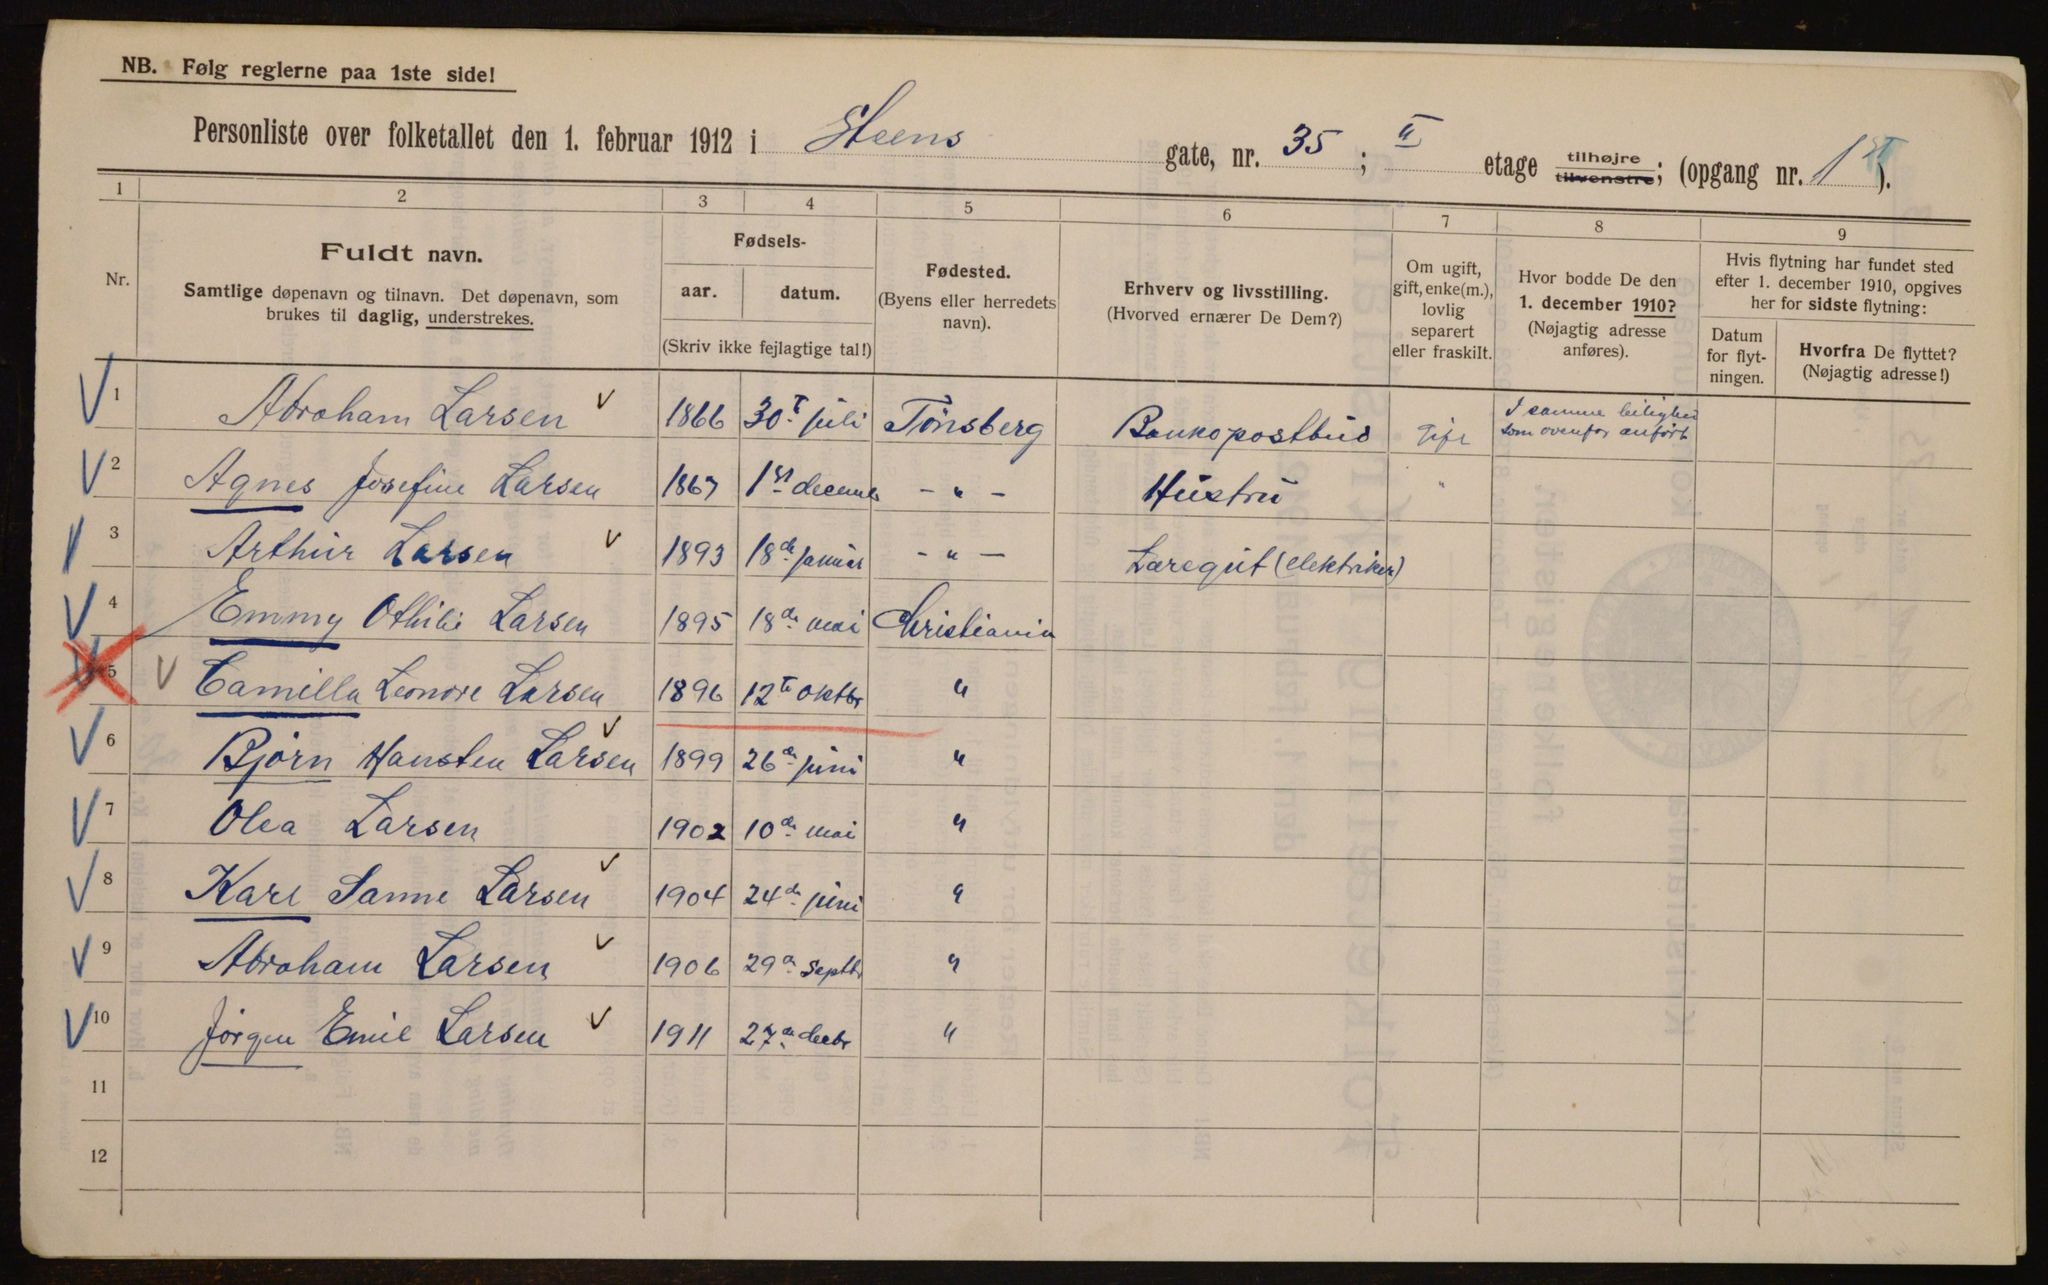 NB. Følg reglerne paa 1ste side!
Personliste over folketallet den 1. februar 1912 i Steens gate, nr. 35 ; II etage tilhøjre tilvenstre; (opgang nr. 1 ).
1 2 3 4 5 6 7 8 9
Nr.
Fuldt navn.
Samtlige døpenavn og tilnavn. Det døpenavn, som
brukes til daglig, understrekes.
Fødsels-
aar. datum.
(Skriv ikke fejlagtige tal!)
Fødested.
(Byens eller herredets
navn).
Erhverv og livsstilling.
(Hvorved ernærer De Dem?)
Om ugift,
gift, enke(m.),
lovlig
separert
eller fraskilt.
Hvor bodde De den
1. december 1910?
(Nøjagtig adresse
anføres).
Hvis flytning har fundet sted
efter 1. december 1910, opgives
her for sidste flytning:
Datum
for flyt-
ningen.
Hvorfra De flyttet?
(Nøjagtig adresse!)
1 Abraham Larsen 1866 30te juli Tønsberg Bankopostbud gift I samme leilighed
som ovenfor anført
2 Agnes Josefine Larsen 1867 1st decembr - " - Hustru "
3 Arthur Larsen 1893 18de januar - " - Læregut (elektriker)
4 Emmy Othilie Larsen 1895 18de mai Christiania
5 Camilla Leonore Larsen 1896 12te oktbr "
6 Bjørn Hansten Larsen 1899 26de juni "
7 Olea Larsen 1902 10de mai "
8 Karl Sanne Larsen 1904 24de juni "
9 Abraham Larsen 1906 29de Septbr "
10 Jørgen Emil Larsen 1911 27de decbr "
11
12